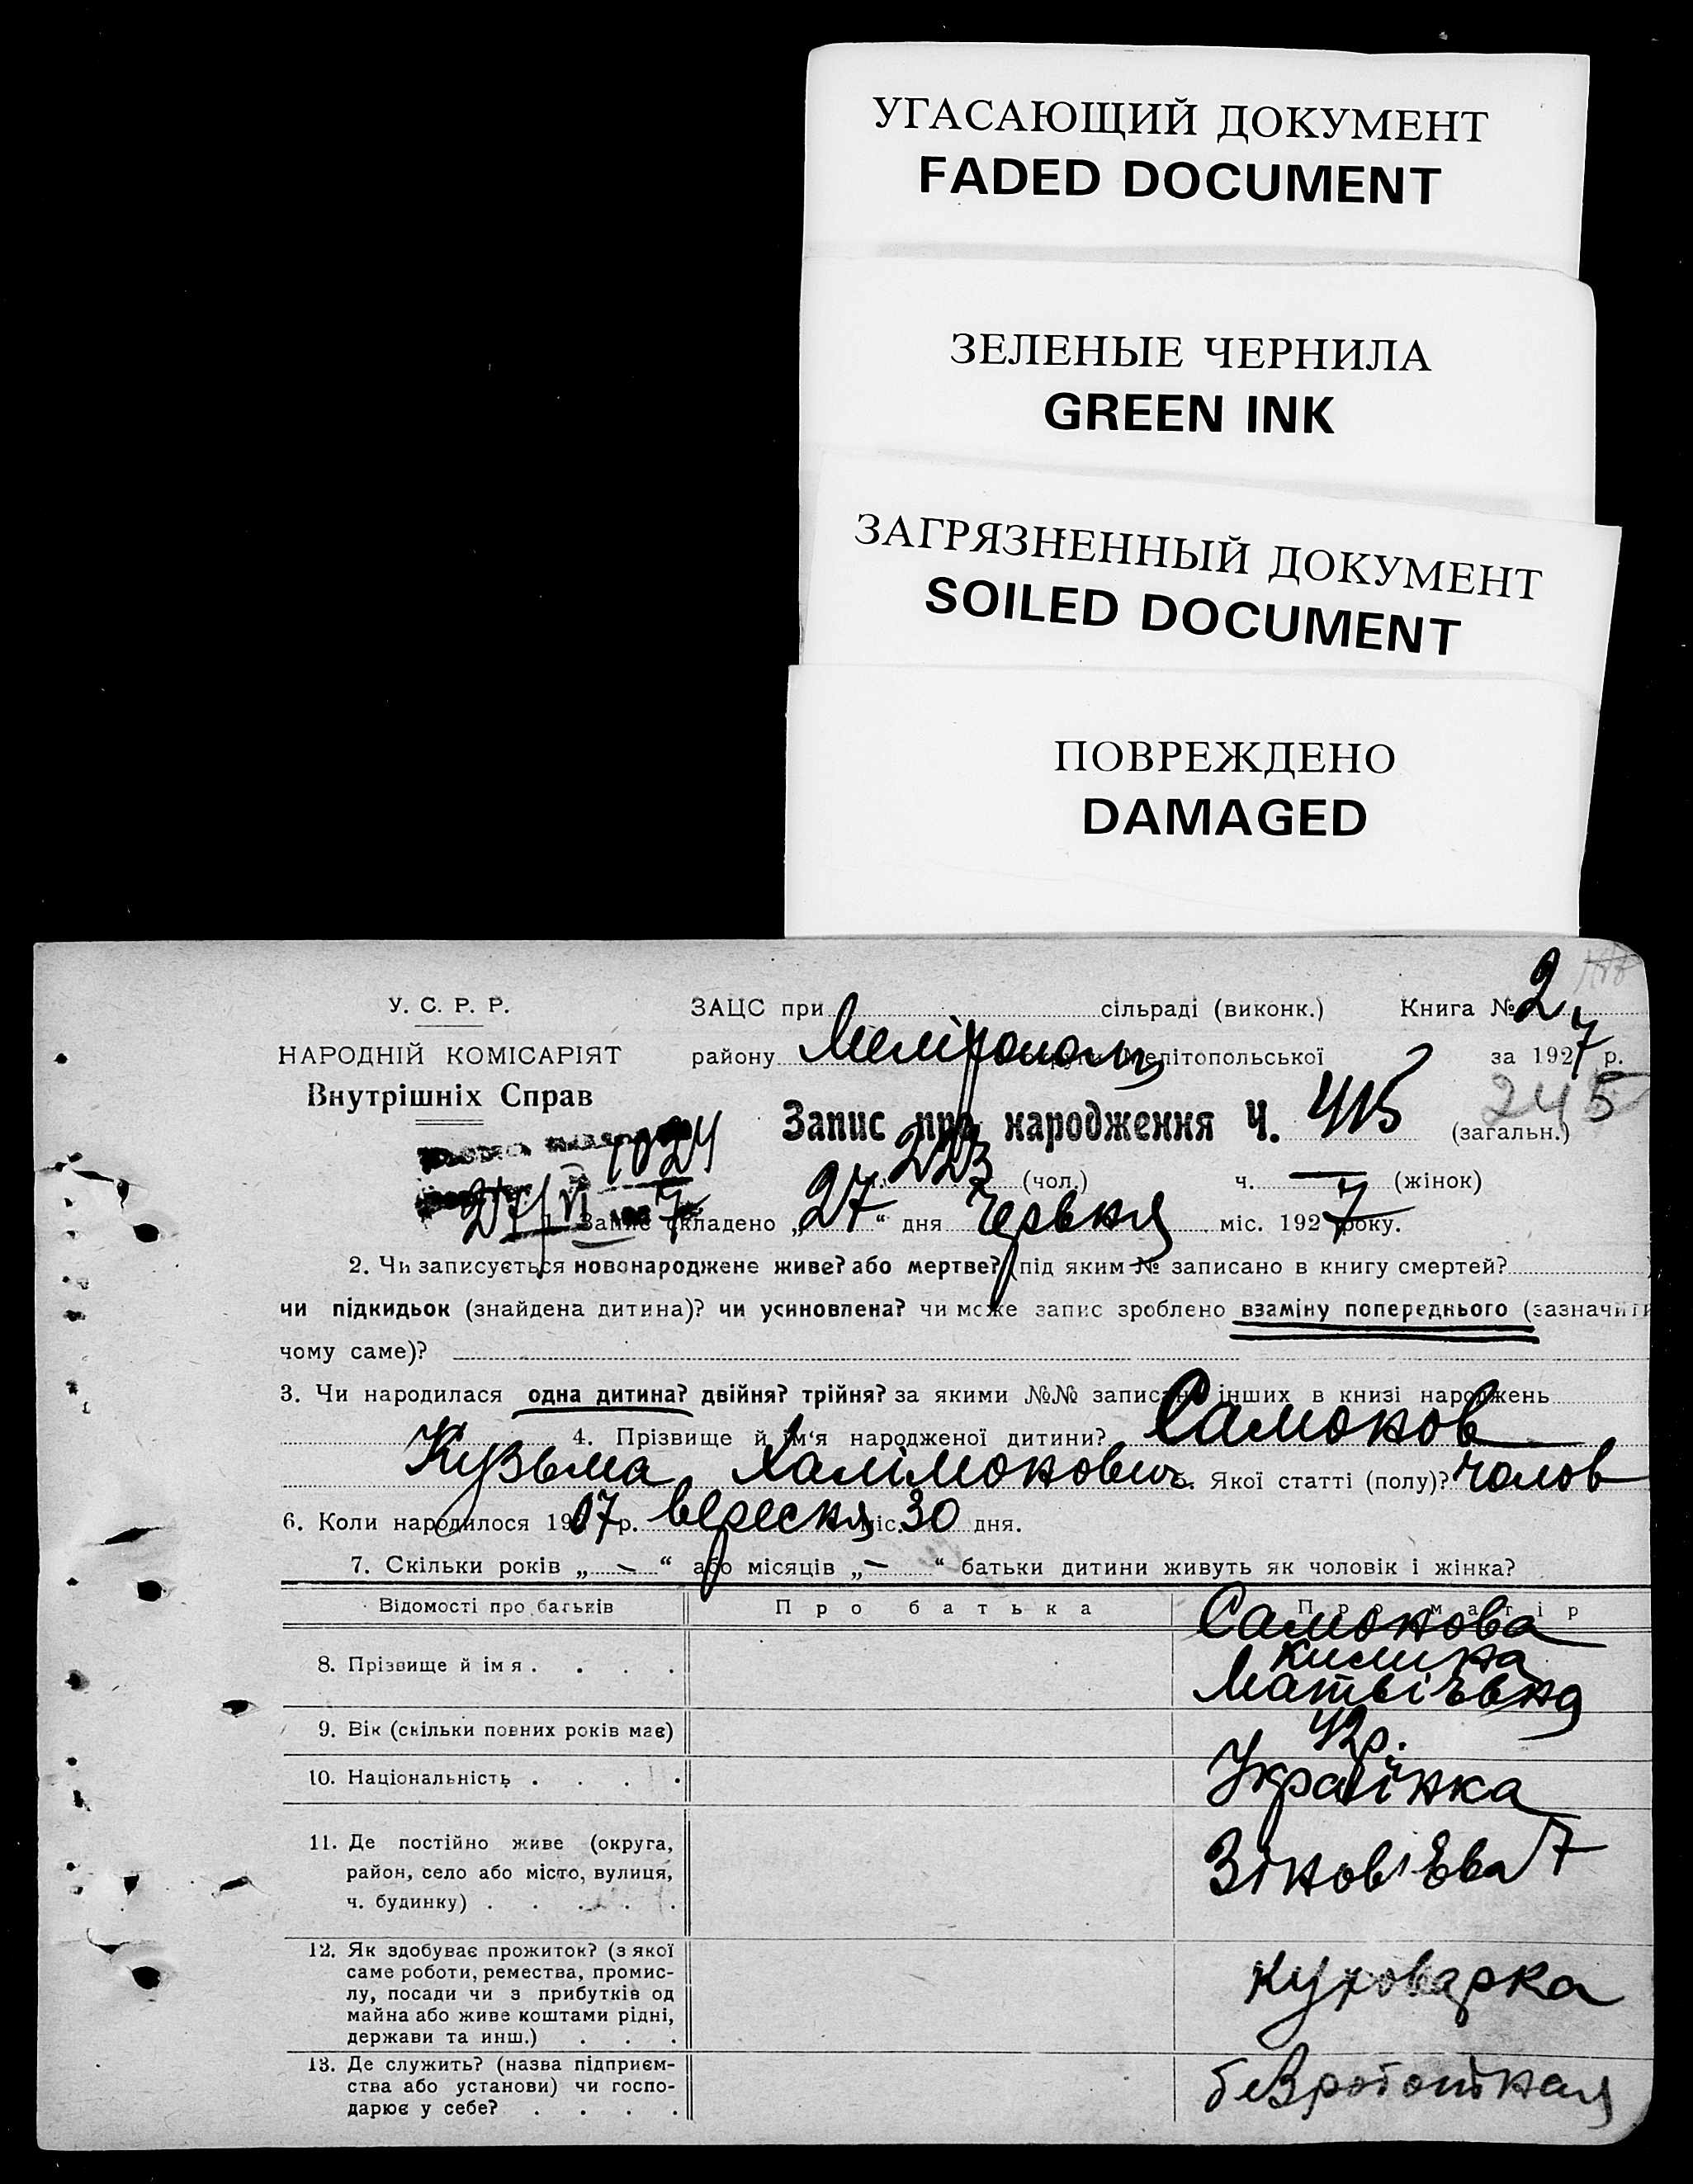 УГАСАЮЩИЙ ДОКУМЕНТ
FADED DOCUMENT
ЗЕЛЕНЫЕ ЧЕРНИЛА
GREEN INK
ЗАГРЯЗНЕННЫЙ ДОКУМЕНТ
SOILED DOCUMENT
ПОВРЕЖДЕНО
DAMAGED
У. С. Р. Р.
НАРОДНІЙ КОМІСАРІЯТ
Внутрішніх Справ
ЗАЦС при сільраді (виконк.) Книга № 2
району Мелітополь округи Мелітопольської за 1927 р.
245
Запис про народження Ч. 415 (загальн.)
1024
223 (чол.) ч. — (жінок)
27/VI 1927
Запис складено „27“ дня Червня міс. 1927 року.
2. Чи записується новонароджене живе? або мертве? (під яким № записано в книгу смертей?
чи підкидьок (знайдена дитина)? чи усиновлена? чи може запис зроблено взаміну попереднього (зазначити
чому саме)?
3. Чи народилася одна дитина? двійня? трійня? за якими №№ записано інших в книзі народжень
4. Прізвище й ім‘я народженої дитини? Самонов
Кузьма Халімонович 5. Якої статті (полу)? чолов
6. Коли народилося 1907 р. вересня міс. 30 дня.
7. Скільки років „—“ або місяців „—“ батьки дитини живуть як чоловік і жінка?
Відомості про батьків Про батька Про матір
8. Прізвище й ім я . . . . . Самонова
Матвіївна
9. Вік (скільки повних років має) 42р.
10. Національність . . . . Українка
11. Де постійно живе (округа,
район, село або місто, вулиця,
ч. будинку) . . . . . Зінов'єва 7
12. Як здобуває прожиток? (з якої
саме роботи, ремества, промис-
лу, посади чи з прибутків од
майна або живе коштами рідні,
держави та инш.) . . . куховарка
13. Де служить? (назва підприєм-
ства або установи) чи госпо-
дарює у себе? . . . . безроботная